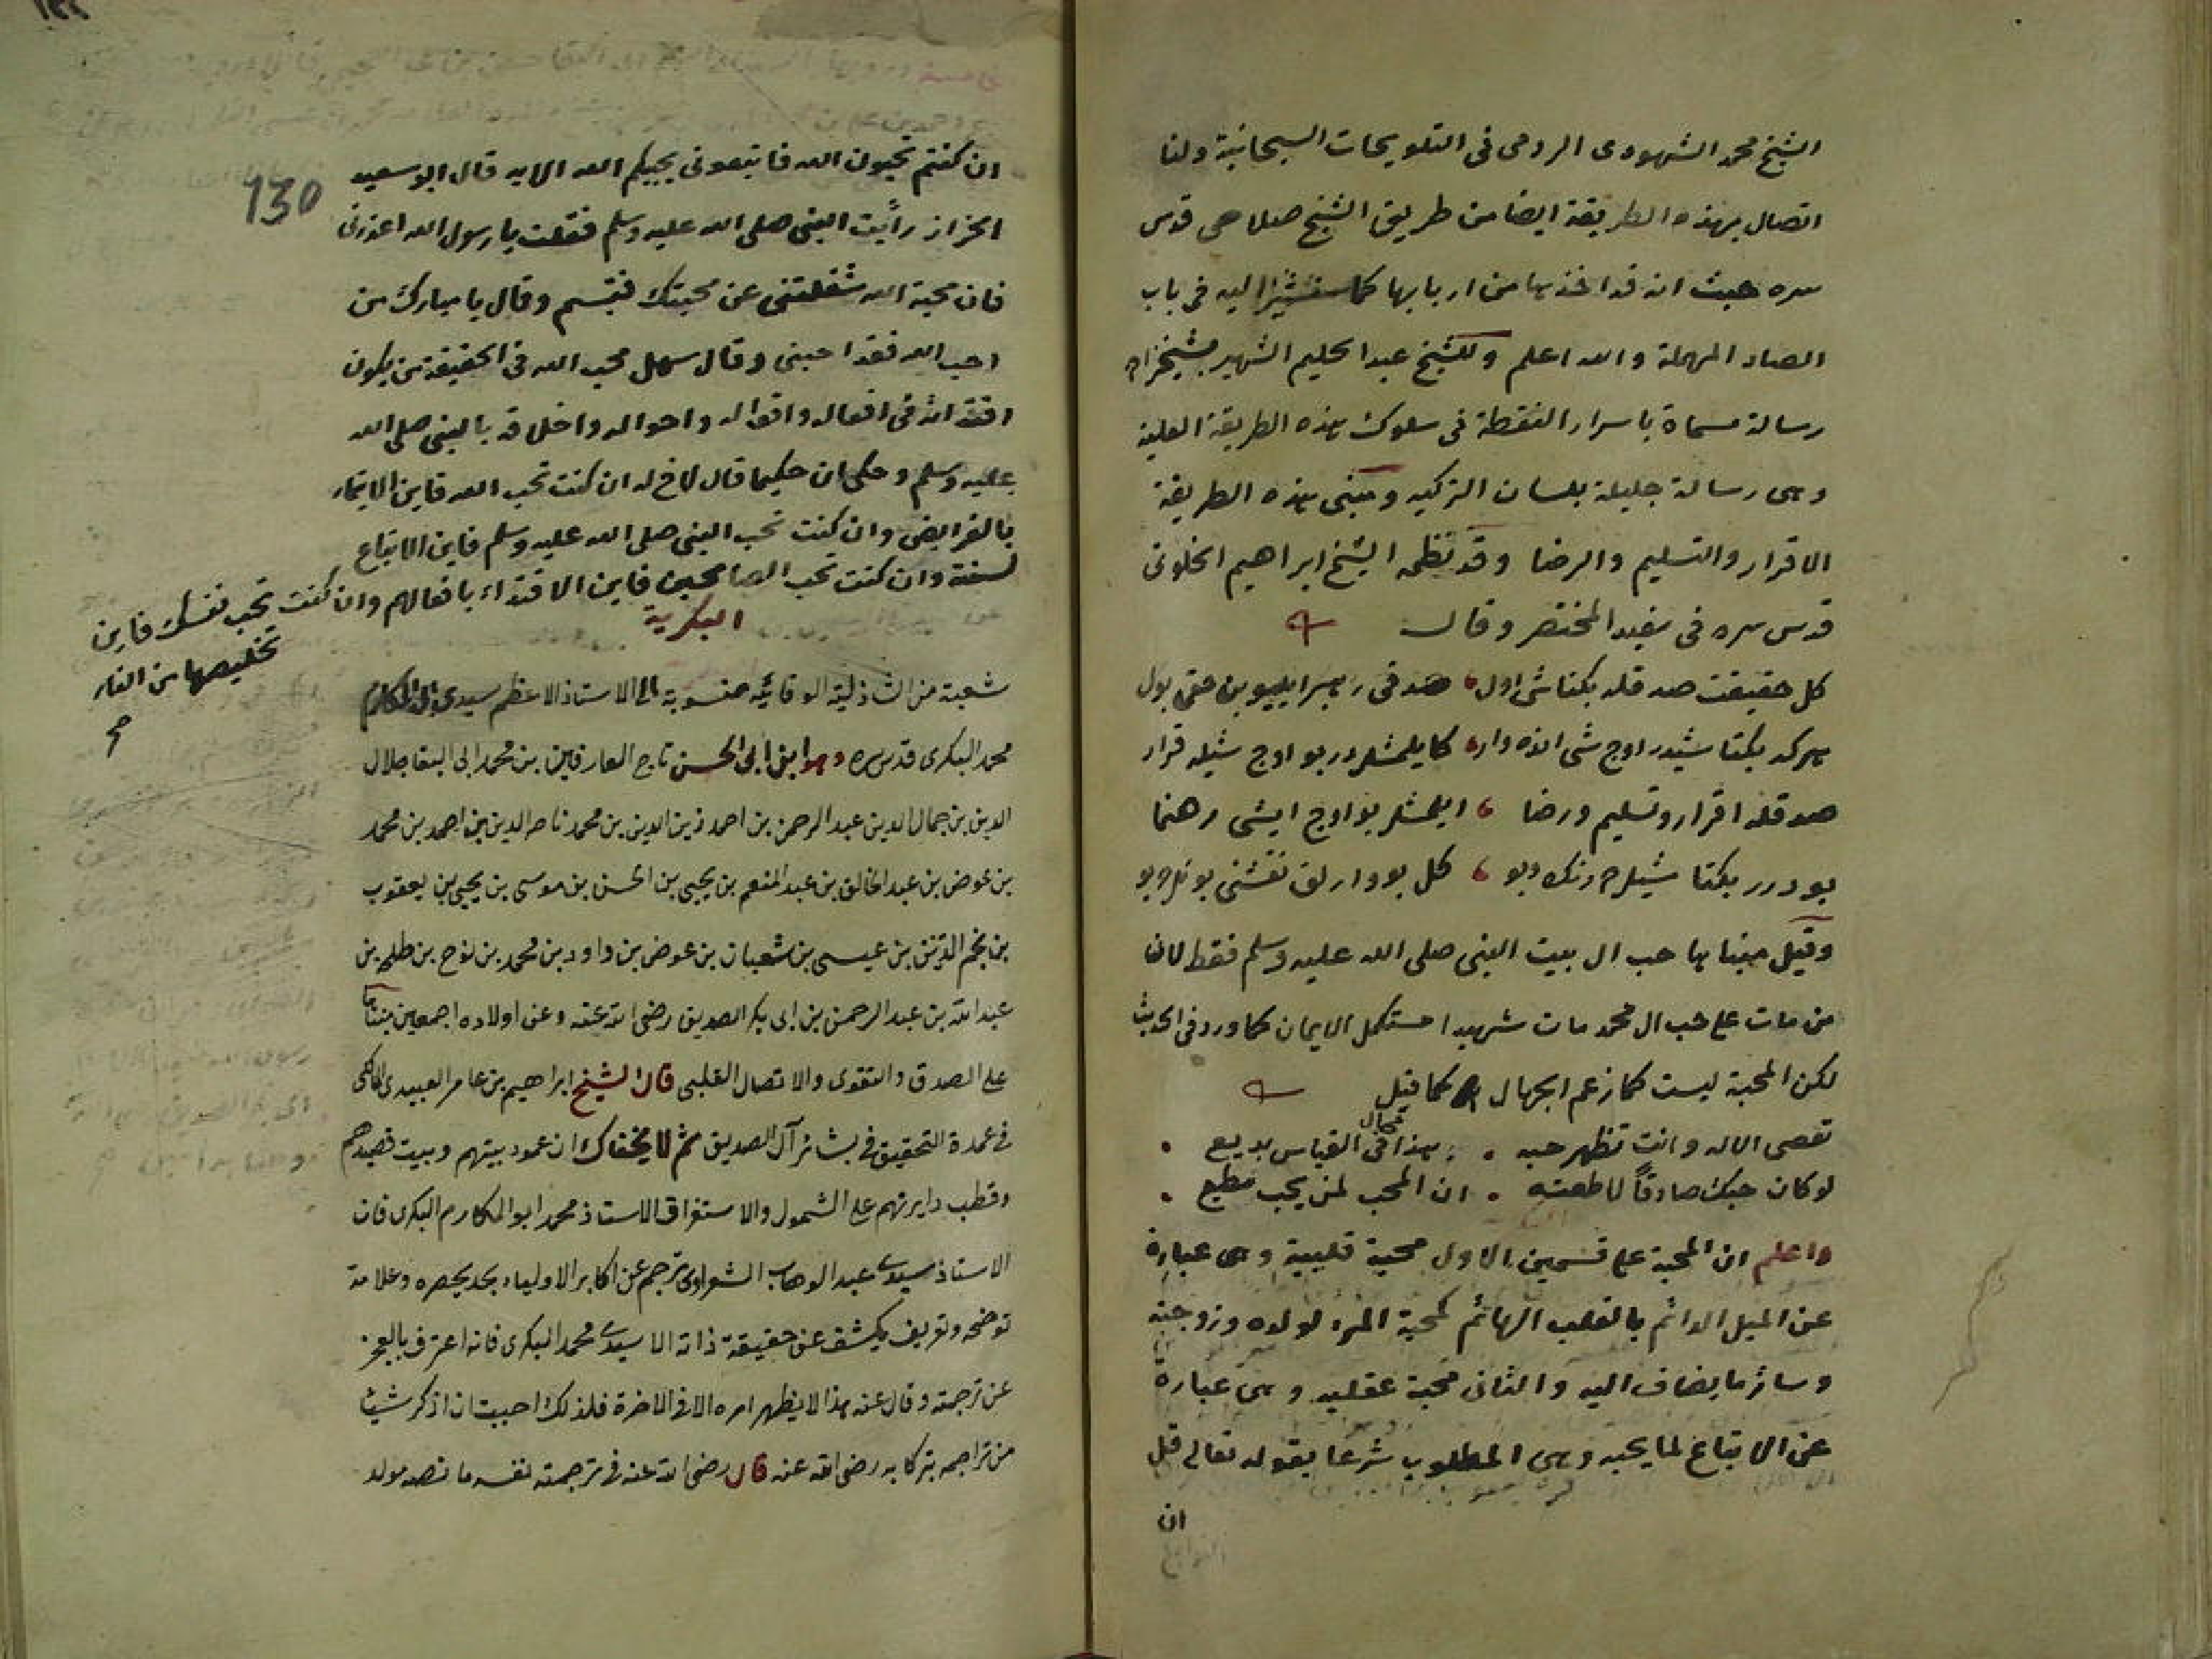 الشيخ محمد الشهودى الرومى فى التلويحات السبحانية ولنا
اتصال بهذه الطريقة ايضا من طريق الشيخ صلاحى قدس
سره حيث انه قد اخذها من اربابها كما سنشير اليه فى باب
الصاد المهملة والله اعلم وللشيخ عبد الحليم الشهير بشيخزاده
رسالة مسماة باسرار النقطة فى سلوك هذه الطريقة العلية
وهى رسالة جليلة بلسان التركيه ومبنى هذه الطريقة
الاقرار والتسليم والرضا وقد نظمه الشيخ ابراهيم الخلوتى
قدس سره فى مفيد المختصر وقال
كل حقيقت صدقله بكتاشى اول صدقى رهبر ايليوبن حقى بول
هركه بكتاشيدر اوج شى انده وار كاملشلردر بو اوج شيله قرار
صدقله اقرار وتسليم ورضا ايلمشلر بو اوج ايشى رهنما
بودرر بكتاشيلره رنك وبو كل بو وارلق نقشنى
وقيل مبناها حب ال بيت النبى صلى الله عليه وسلم فقط لان
من مات على حب ال محمد مات شهيدا مستكمل الايمان كما ورد فى الحديث
لكن المحبة ليست كما زعم الجهال كما قيل
تعصى الاله وانت تظهر حبه هذا محال فى القياس بديع
لو كان حبك صادقاً لاطعته ان المحب لمن يحب مطيع
واعلم ان المحبة على قسمين الاول محبة قلبية وهى عبارة
عن الميل الدائم بالقلب الهائم كمحبة المرء لولده وزوجته
وسائر ما يضاف اليه والثانى محبة عقليه وهى عبارة
عن الاتباع لما يحبه وهى المطلوب شرعا بقوله تعالى قل
ان
130
ان كنتم تحبون الله فاتبعونى يحببكم الله الايه قال ابو سعيد
الخراز رأيت النبى صلى الله عليه وسلم فقلت يا رسول الله اعذرنى
فان محبة الله شغلتنى عن محبتك فتبسم وقال يا مبارك من
احب الله فقد احبنى وقال سهل محب الله فى الحقيقة من يكون
اقتداؤه فى افعاله واقواله واحواله واخلاقه بالنبى صلى الله
عليه وسلم وحكى ان حكيما قال لاخ له ان كنت تحب الله فاين الايتمار
بالفرايض وان كنت تحب النبى صلى الله عليه وسلم فاين الاتباع
لسنة وان كنت تحب الصالحين فاين الاقتداء بافعالهم وان كنت تحب نفسك فاين
تخليصها من النار
البكرية
شعبة من الشاذلية الوفائية منسوبة الى الاستاذ الاعظم سيدى ابى المكارم
محمد البكرى قدس سره وهو ابن ابى الحسن تاج العارفين بن محمد ابى البقا جلال
الدين بن جمال الدين عبد الرحمن بن احمد زين الدين بن محمد ناصر الدين بن احمد بن محمد
بن عوض بن عبد الخالق بن عبد المنعم بن يحيى بن الحسن بن موسى بن يحيى بن يعقوب
بن نجم الدين بن عيسى بن شعبان بن عوض بن داود بن محمد بن نوح بن طلحه بن
عبد الله بن عبد الرحمن بن ابى بكر الصديق رضى الله عنه وعن اولاده اجمعين مبناها
على الصدق والتقوى والاتصال القلبى قال الشيخ ابراهيم بن عامر العبيدى المالكى
فى عمدة التحقيق فى بشائر آل الصديق ثم لا يخفاك ان عمود بيتهم وبيت قصيدهم
وقطب دايرتهم على الشمول والاستغراق الاستاذ محمد ابو المكارم البكرى فان
الاستاذ سيدى عبد الوهاب الشعراوى ترجم عن اكابر الاولياء بحد يحصره وعلامة
توضحه وتعريف يكشف عن حقيقة ذاته الا سيدى محمد البكرى فانه اعترف بالعجز
عن ترجمته وقال عنه هذا لا يظهر امره الا فى الاخرة فلذلك احببت ان اذكر شيئا
من تراجمه بتركا به رضى الله عنه قال رضى الله عنه فى ترجمة نفسه ما نصه مولد